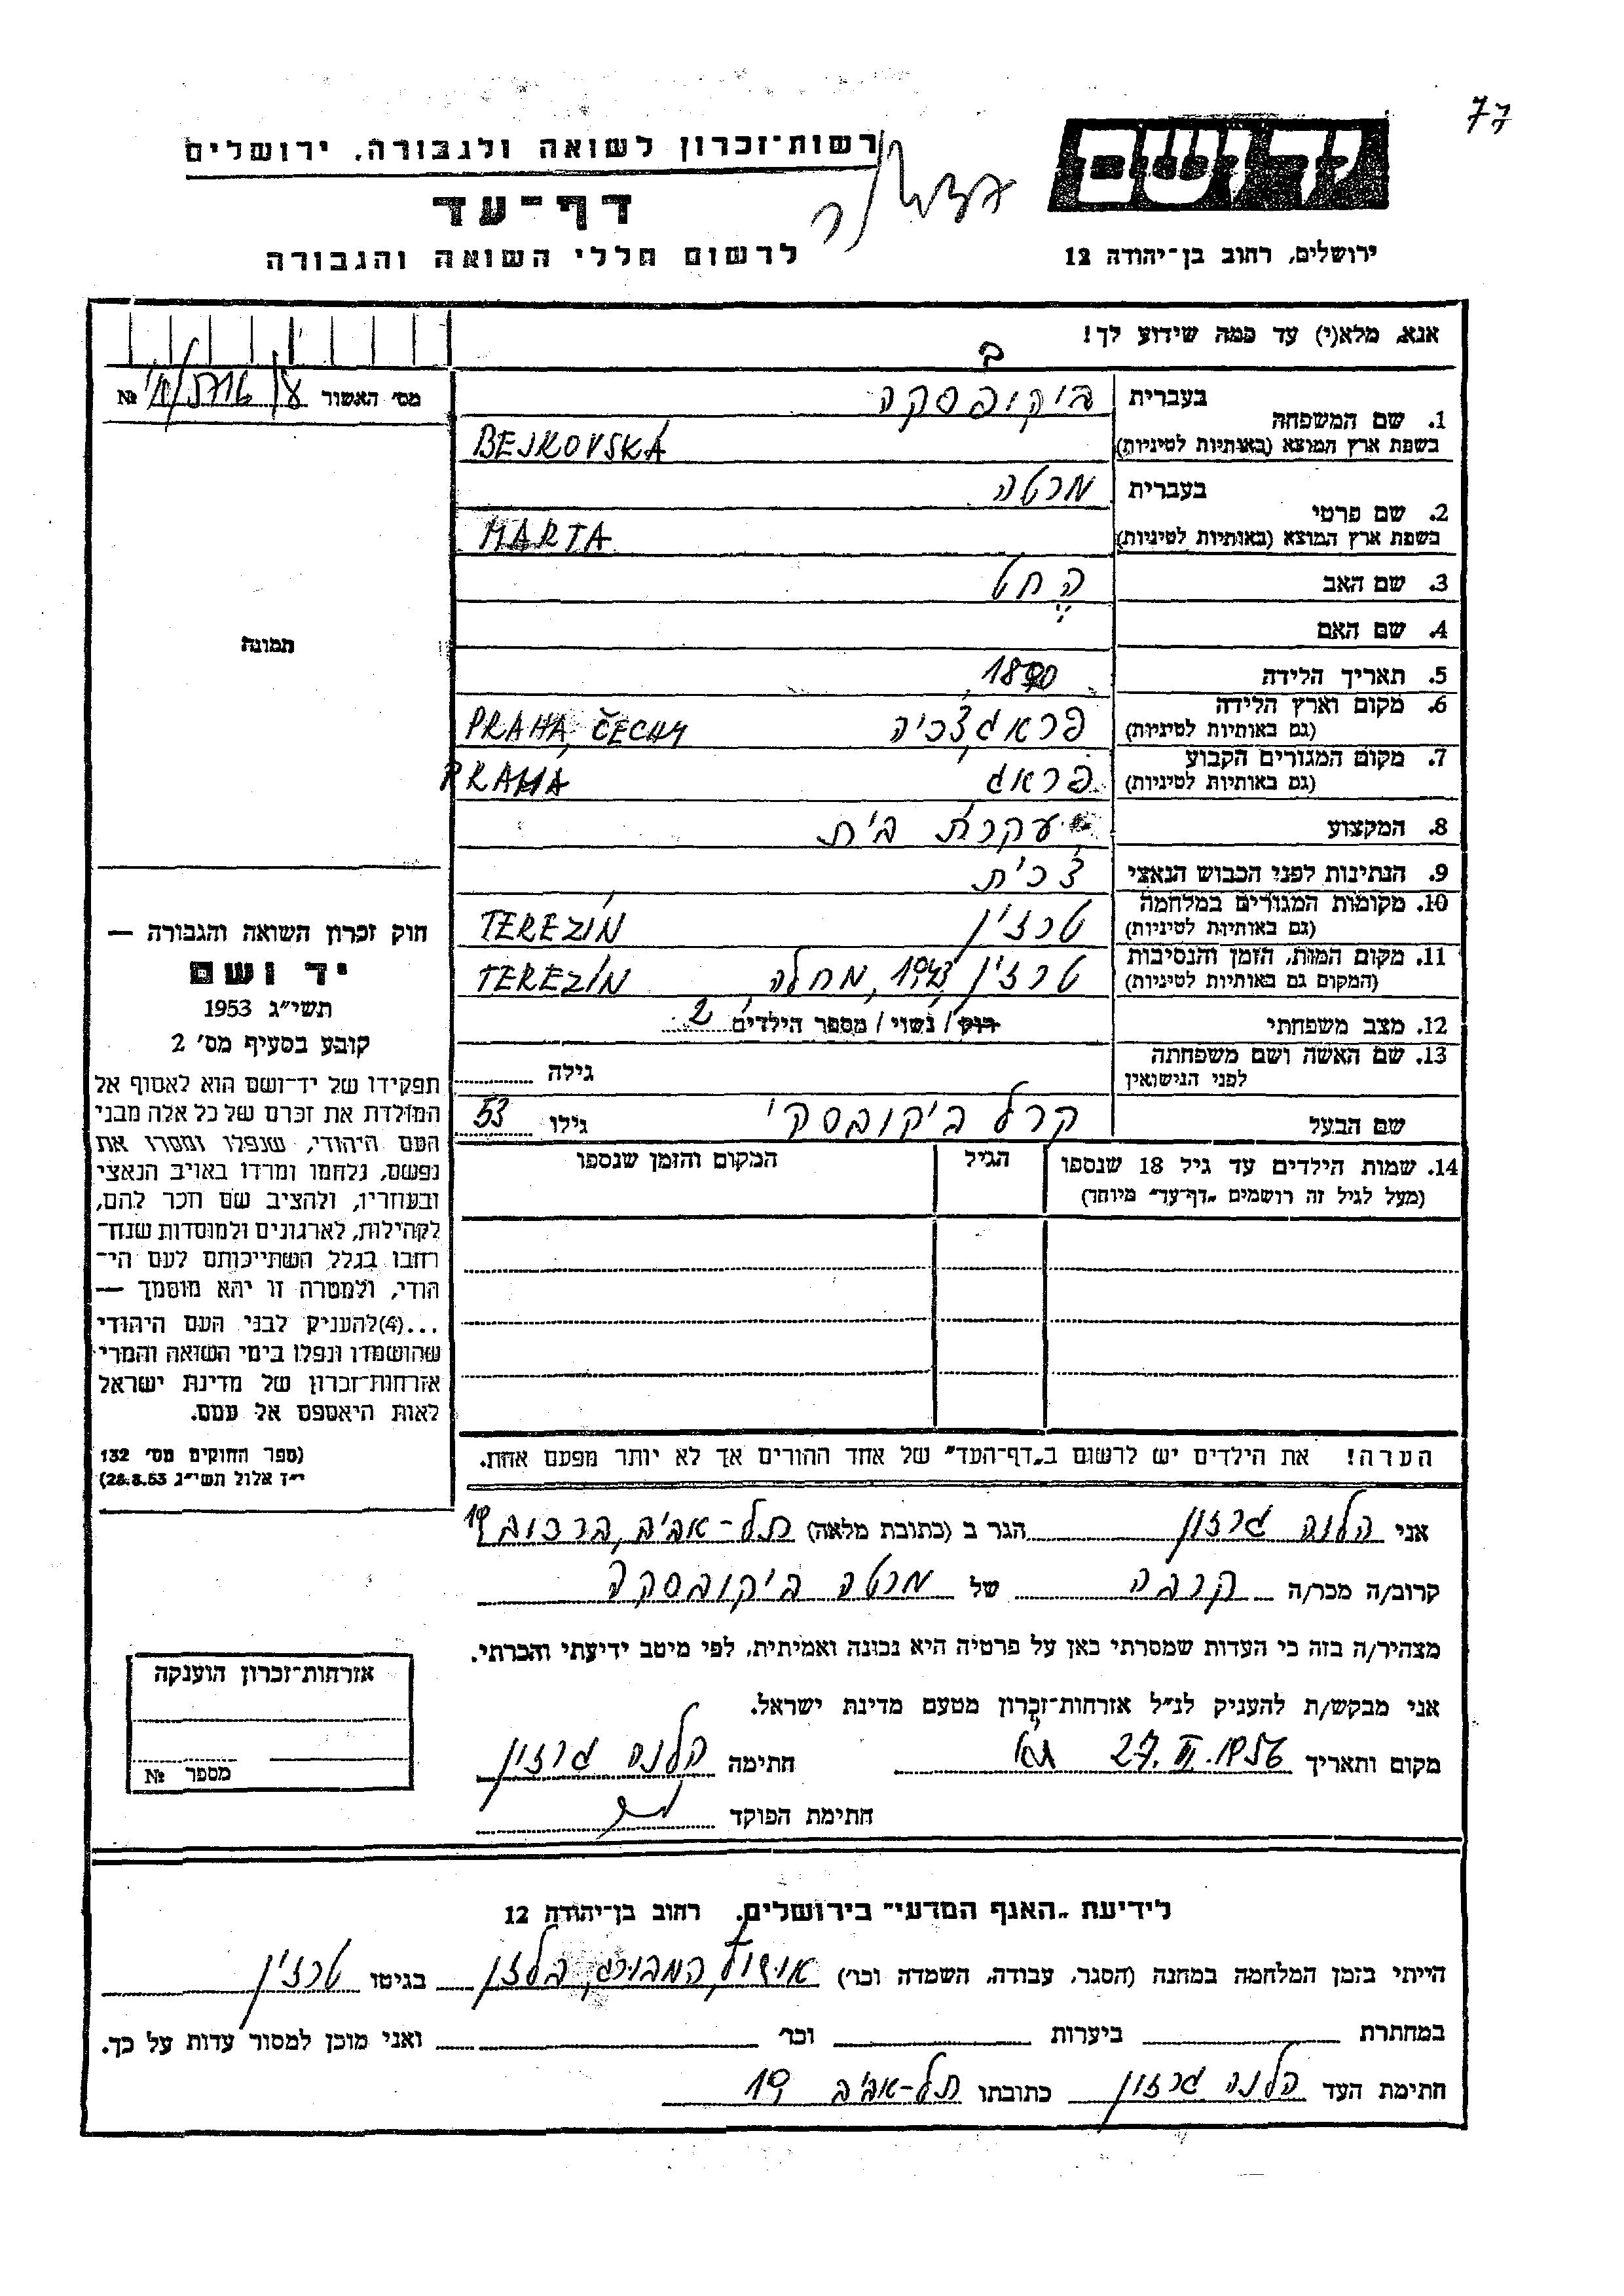 77
יד ושם
רשות־זכרון לשואה ולגבורה, ירושלים
דף־עד
ירושלים, רחוב בן־יהודה 12
לרשום חללי השואה והגבורה
אנא, מלא(י) עד כמה שידוע לך!
מס' האשור №
1. שם המשפחה
בעברית ביקובסקה
בשפת ארץ המוצא (באותיות לטיניות) BEJKOVSKÁ
2. שם פרטי
בעברית מרטה
בשפת ארץ המוצא (באותיות לטיניות) MARTA
3. שם האב
4. שם האם
תמונה
5. תאריך הלידה 1890
6. מקום וארץ הלידה
(גם באותיות לטיניות) פראג, צ'כיה PRAHA, ČECHY
7. מקום המגורים הקבוע
(גם באותיות לטיניות) פראג PRAHA
8. המקצוע עקרת בית
9. הנתינות לפני הכבוש הנאצי צ'כית
10. מקומות המגורים במלחמה
(גם באותיות לטיניות) טרזין TEREZÍN
11. מקום המות, הזמן והנסיבות
(המקום גם באותיות לטיניות) טרזין 1943, מחלה TEREZÍN
12. מצב משפחתי רוק / נשוי / מספר הילדים 2
13. שם האשה ושם משפחתה
לפני הנישואין גילה
שם הבעל קרל ביקובסקי גילו 53
14. שמות הילדים עד גיל 18 שנספו הגיל המקום והזמן שנספו
(מעל לגיל זה רושמים „דף־עד" מיוחד)
חוק זכרון השואה והגבורה —
יד ושם
תשי״ג 1953
קובע בסעיף מס' 2
תפקידו של יד־ושם הוא לאסוף אל
המולדת את זכרם של כל אלה מבני
העם היהודי, שנפלו ומסרו את
נפשם, נלחמו ומרדו באויב הנאצי
ובעוזריו, ולהציב שם וזכר להם,
לקהילות, לארגונים ולמוסדות שנח־
רבו בגלל השתייכותם לעם הי־
הודי, ולמטרה זו יהא מוסמך —
...(4)להעניק לבני העם היהודי
שהושמדו ונפלו בימי השואה והמרי
אזרחות־זכרון של מדינת ישראל
לאות היאספם אל עמם.
(ספר החוקים מס' 132
י״ד אלול תשי״ג 28.8.53)
הערה! את הילדים יש לרשום ב„דף־העד" של אחד ההורים אך לא יותר מפעם אחת.
אני הלנה גרזון הגר ב (כתובת מלאה) תל-אביב, 19
קרוב/ה מכר/ה קרבה של מרטה ביקובסקה
מצהיר/ה בזה כי העדות שמסרתי כאן על פרטיה היא נכונה ואמיתית, לפי מיטב ידיעתי והכרתי.
אני מבקש/ת להעניק לנ״ל אזרחות־זכרון מטעם מדינת ישראל.
מקום ותאריך 1956 חתימה הלנה גרזון
חתימת הפוקד
אזרחות־זכרון הוענקה
מספר №
לידיעת „האגף המדעי" בירושלים, רחוב בן־יהודה 12
הייתי בזמן המלחמה במחנה (הסגר, עבודה, השמדה וכו') המבורג, בלזן בגיטו טרזין
במחתרת ביערות וכו' ואני מוכן למסור עדות על כך.
חתימת העד הלנה גרזון כתובתו תל-אביב 19